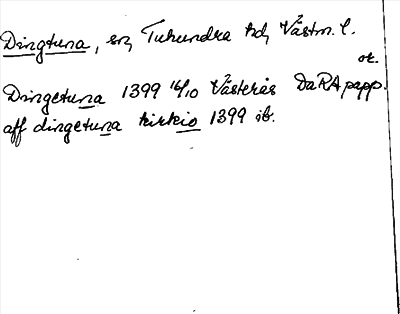 Dingtuna, sn, Tuhundra hd, Västm. l.
or.
Dingetuna 1399 16/10 Västerås DaRA papp.
aff dingetuna kirkio 1399 ib.